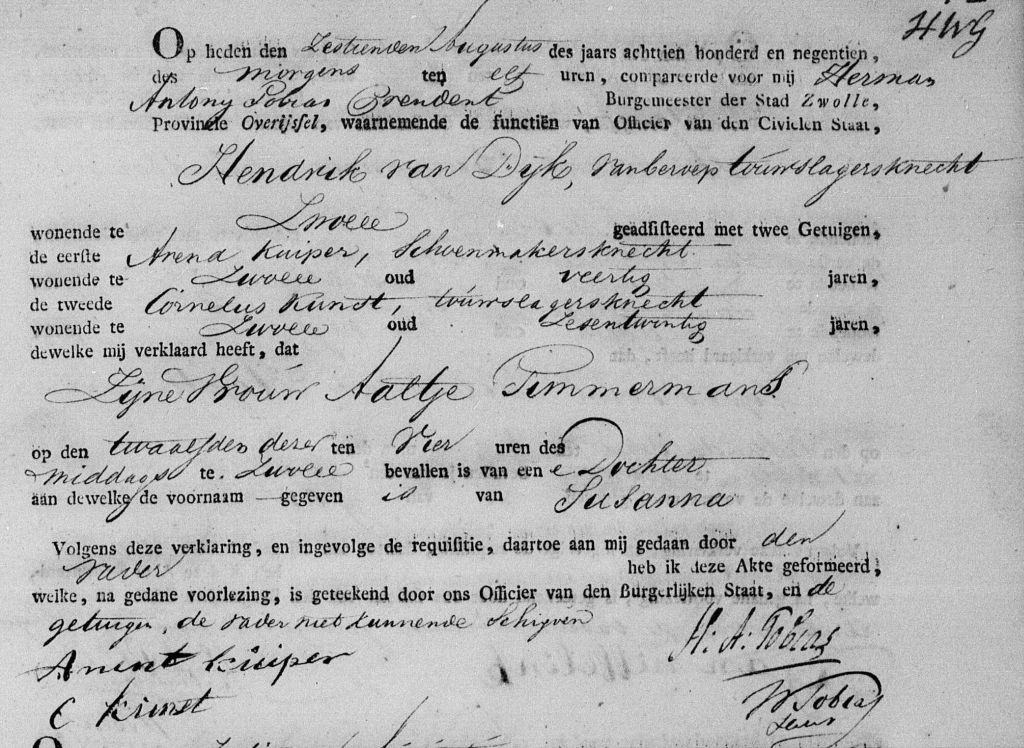 HWG
Op heden den Zestienden Augustus des jaars achttien honderd en negentien,
des morgens ten elf uren, compareerde voor mij Herman
Antony Tobias Prendent Burgemeester der Stad Zwolle,
Provincie Overijssel, waarnemende de functiën van Officier van den Civielen Staat,
Hendrik van Dijk, van beroep touwslagersknecht
wonende te Zwolle geadsisteerd met twee Getuigen,
de eerste Arend Kuiper, Schoenmakersknecht
wonende te Zwolle oud veertig jaren,
de tweede Cornelus Kunst, touwslagersknecht
wonende te Zwolle oud Zesentwintig jaren,
dewelke mij verklaard heeft, dat
Zijne Vrouw Aaltje Timmermans
op den twaalfden dezer ten Vier uren des
middags te Zwolle bevallen is van een e Dochter
aan dewelke de voornaam gegeven is van Susanna
Volgens deze verklaring, en ingevolge de requisitie, daartoe aan mij gedaan door den
vader heb ik deze Akte geformeerd,
welke, na gedane voorlezing, is geteekend door ons Officier van den Burgerlijken Staat, en de
getuigen, de vader niet kunnende Schrijven
Arent kuiper H: A: Tobias
C kunst W Tobias